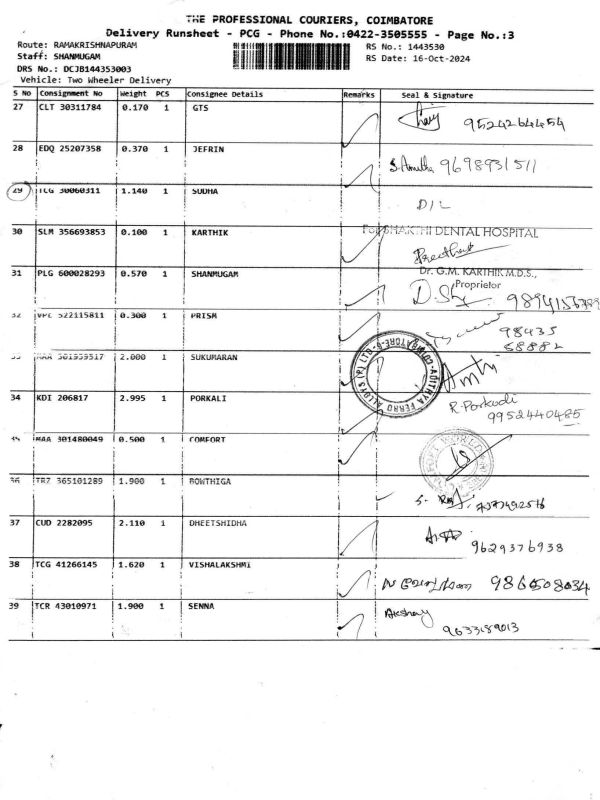 THE PROFESSIONAL COURIERS, COIMBATORE
Delivery Runsheet - PCG - Phone No.:0422-3505555 - Page No.:3
Route: RAMAKRISHNAPURAM
Staff: SHANMUGAM
DRS No.: DCJB144353003
Vehicle: Two Wheeler Delivery
RS No.: 1443530
RS Date: 16-Oct-2024
S No Consignment No Weight PCS Consignee Details Remarks Seal & Signature
27 CLT 30311784 0.170 1 GTS
9524264454
28 EDQ 25207358 0.370 1 JEFRIN
S. Amutha 9698931511
29 TCG 30060311 1.140 1 SUDHA
D/L
30 SLM 356693853 0.100 1 KARTHIK
For SHAKTHI DENTAL HOSPITAL
Dr. G.M. KARTHIK M.D.S.,
Proprietor
31 PLG 600028293 0.570 1 SHANMUGAM
32 VPL 522115811 0.300 1 PRISM
98435
68882
33 MAA 301959517 2.000 1 SUKUMARAN
ADITHYA FERRO ALLOYS (P) LTD. COIMBATORE-6
34 KDI 206817 2.995 1 PORKALI
R. Porkodi
9952440485
35 MAA 301480049 0.500 1 COMFORT
36 TRZ 365101289 1.900 1 BOWTHIGA
37 CUD 2282095 2.110 1 DHEETSHIDHA
9629376938
38 TCG 41266145 1.620 1 VISHALAKSHMI
39 TCR 43010971 1.900 1 SENNA
Akshay
9633189013